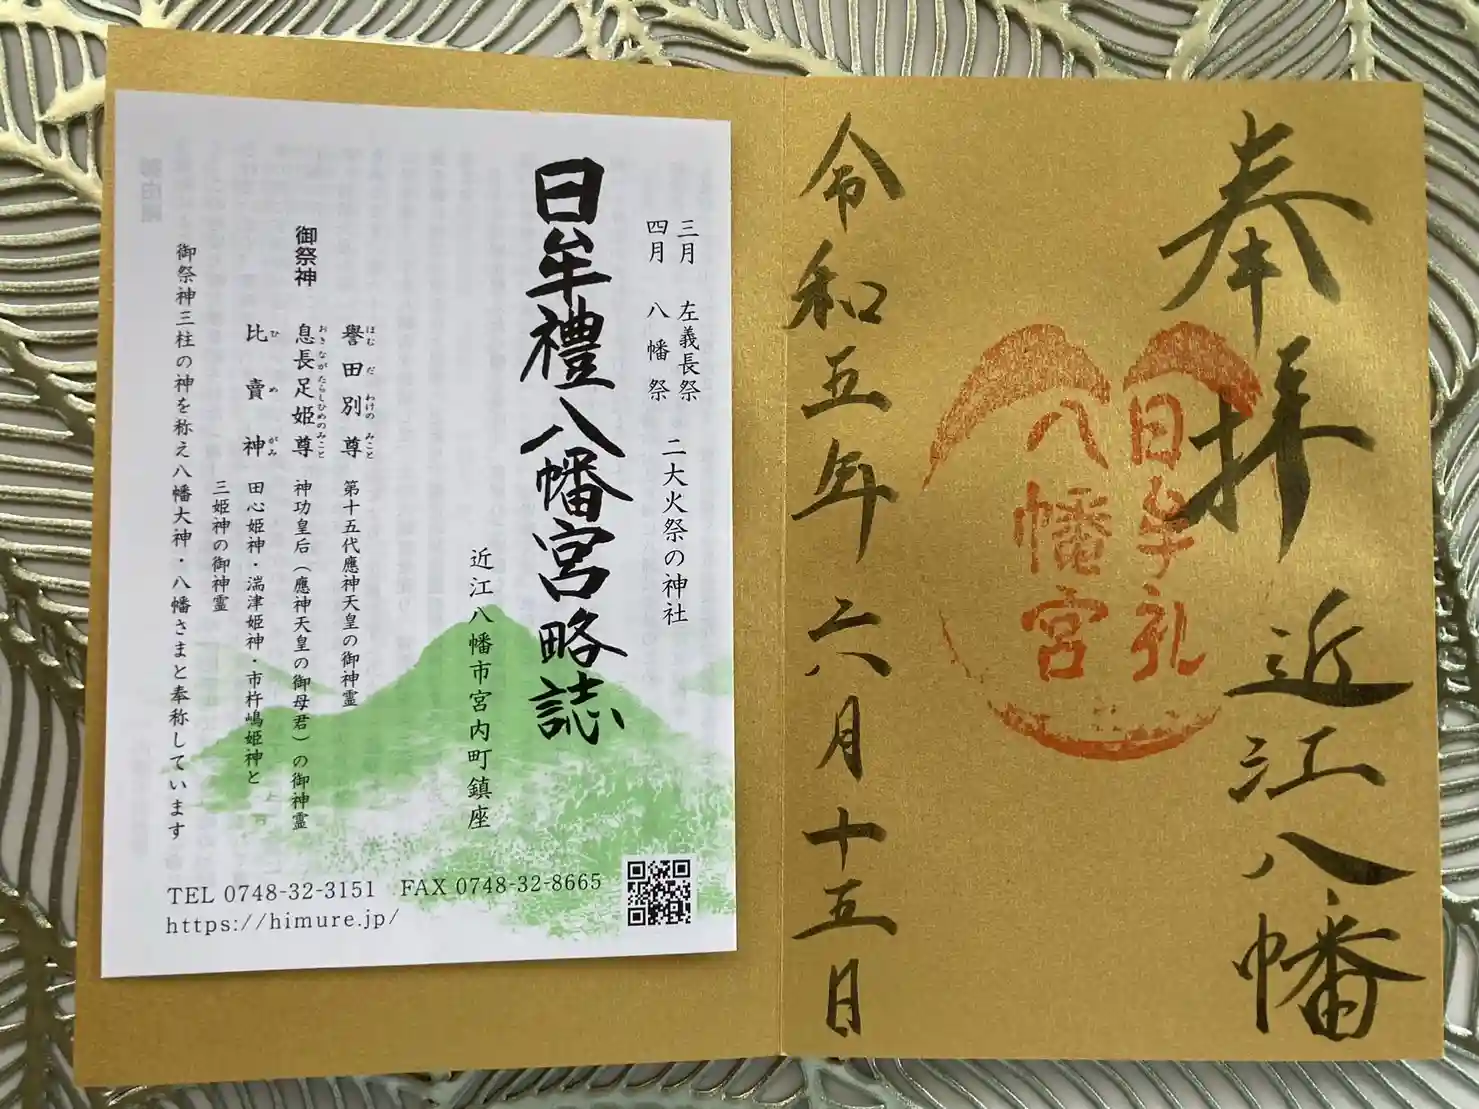 奉拝 近江八幡
日牟礼
八幡宮
令和五年六月十五日
三月 左義長祭
四月 八幡祭
二大火祭の神社
日牟禮八幡宮略誌
近江八幡市宮内町鎮座
御祭神
譽田別尊 第十五代應神天皇の御神霊
ほむだわけのみこと
息長足姫尊 神功皇后(應神天皇の御母君)の御神霊
おきながたらしひめのみこと
比賣神 田心姫神・湍津姫神・市杵嶋姫神と
ひめがみ
三姫神の御神霊
御祭神三柱の神を称え八幡大神・八幡さまと奉称しています
TEL 0748-32-3151 FAX 0748-32-8665
https://himure.jp/